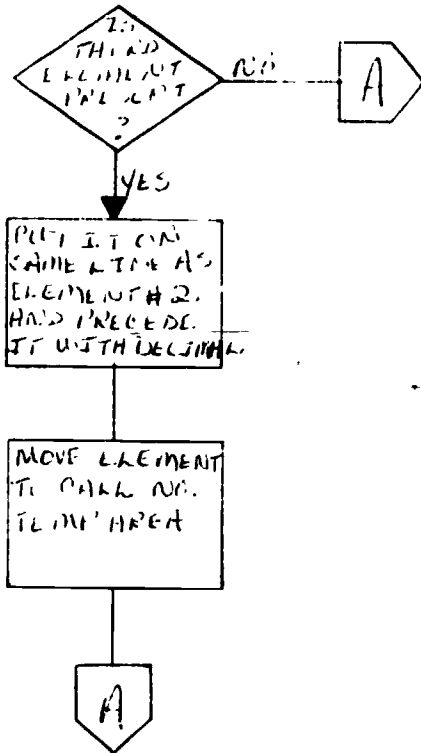 IS
THIRD
ELEMENT
PRESENT
?
NO
A
YES
PUT IT ON
SAME LINE AS
ELEMENT #2.
AND PRECEDE
IT WITH DECIMAL
MOVE ELEMENT
TO CALL NO.
TEMP AREA
A